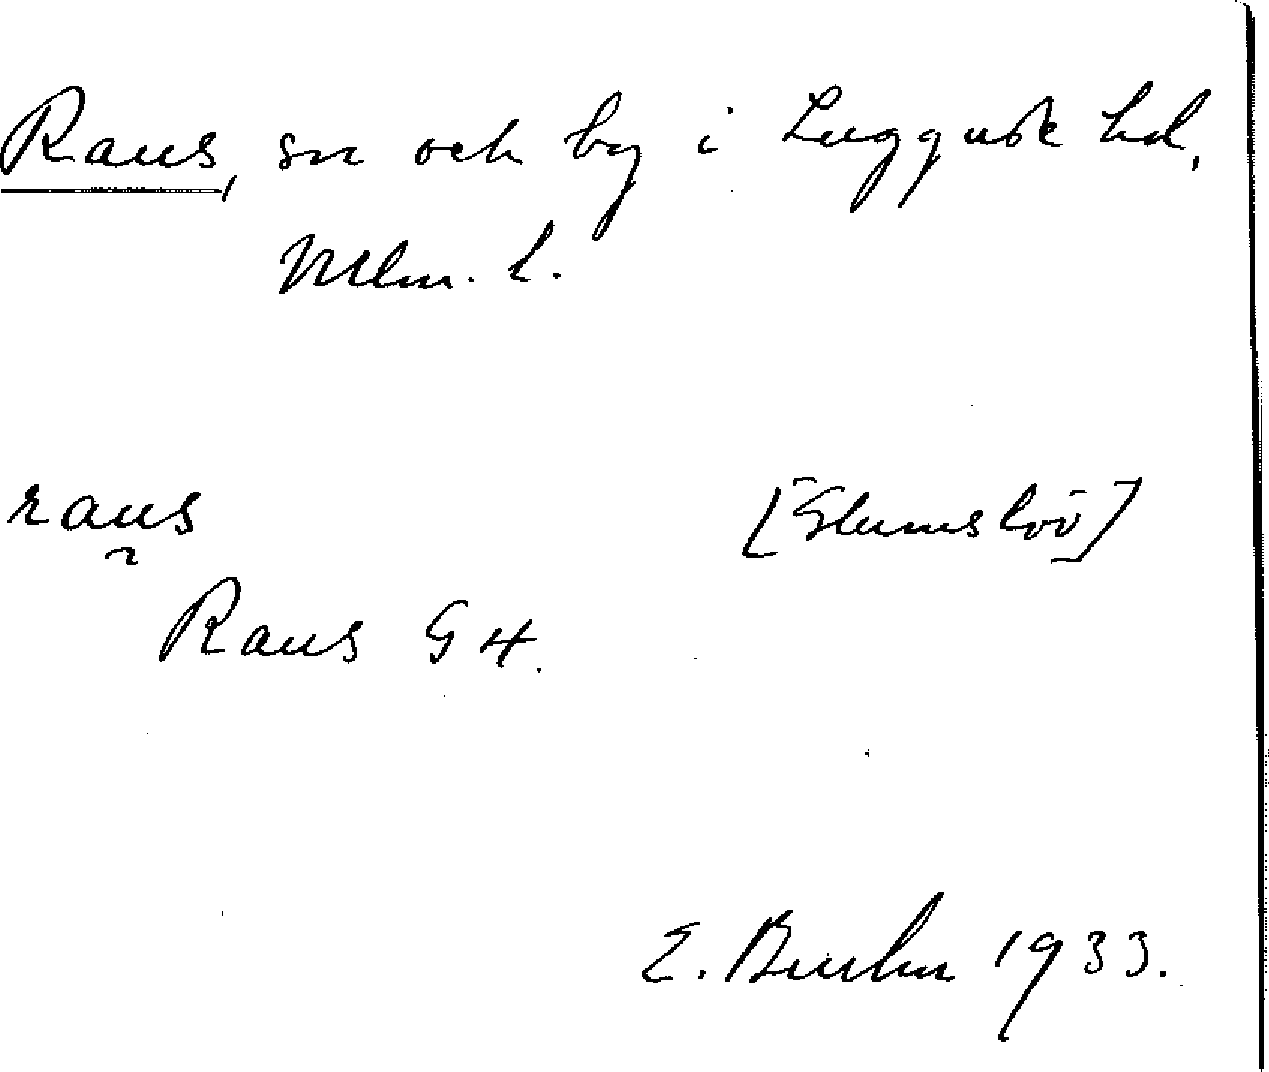 Raus, sn och by i Luggude hd,
Mlm. l.
raus [Glumslöv]
Raus G 4.
E. Bruhn 1933.